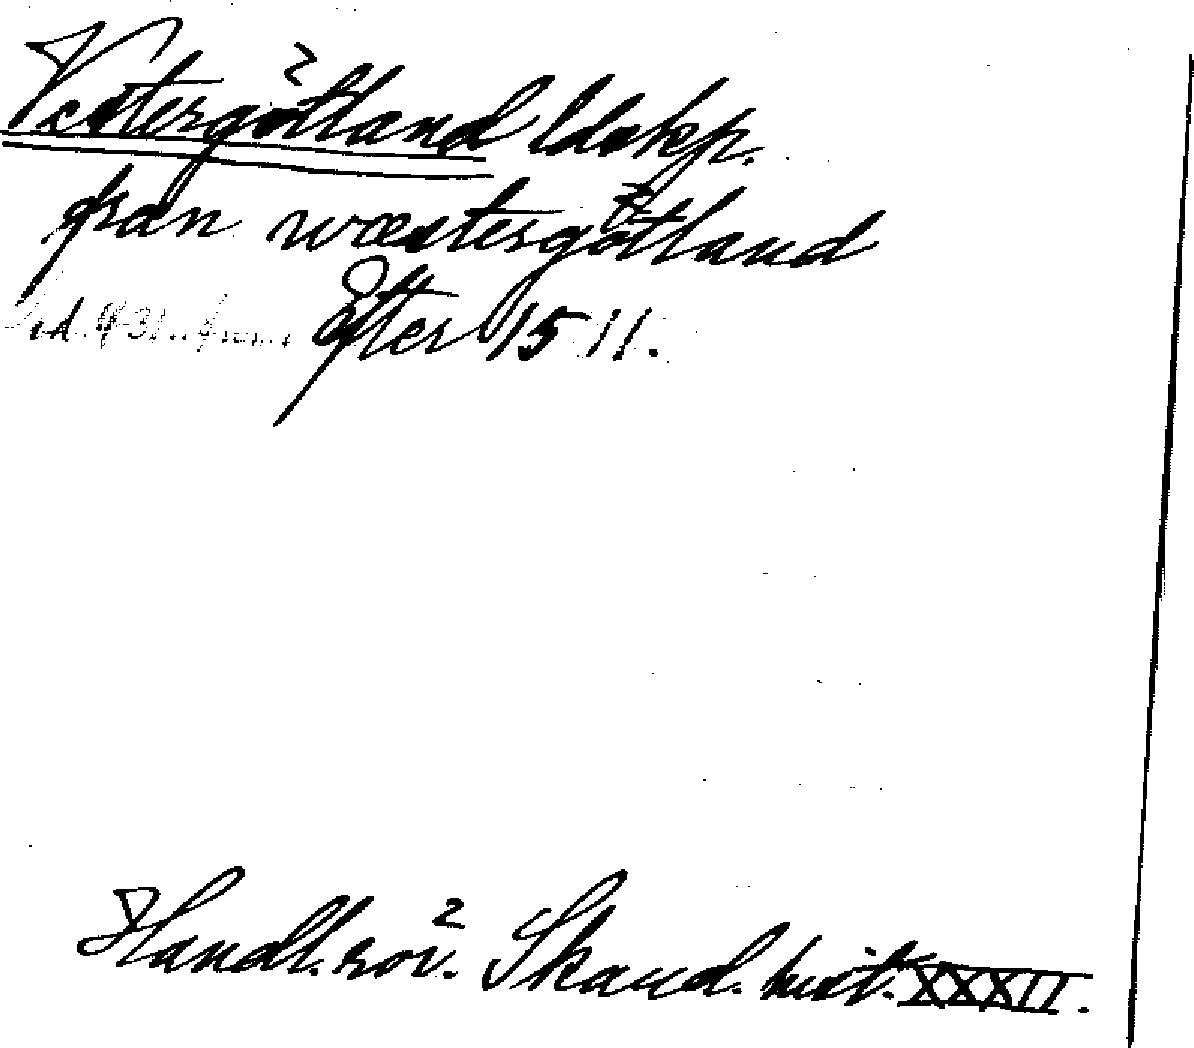 Västergötland ldskp.
fran wæstergötland
Efter 1511.
Handl. rör. Skand. hist. XXXII.